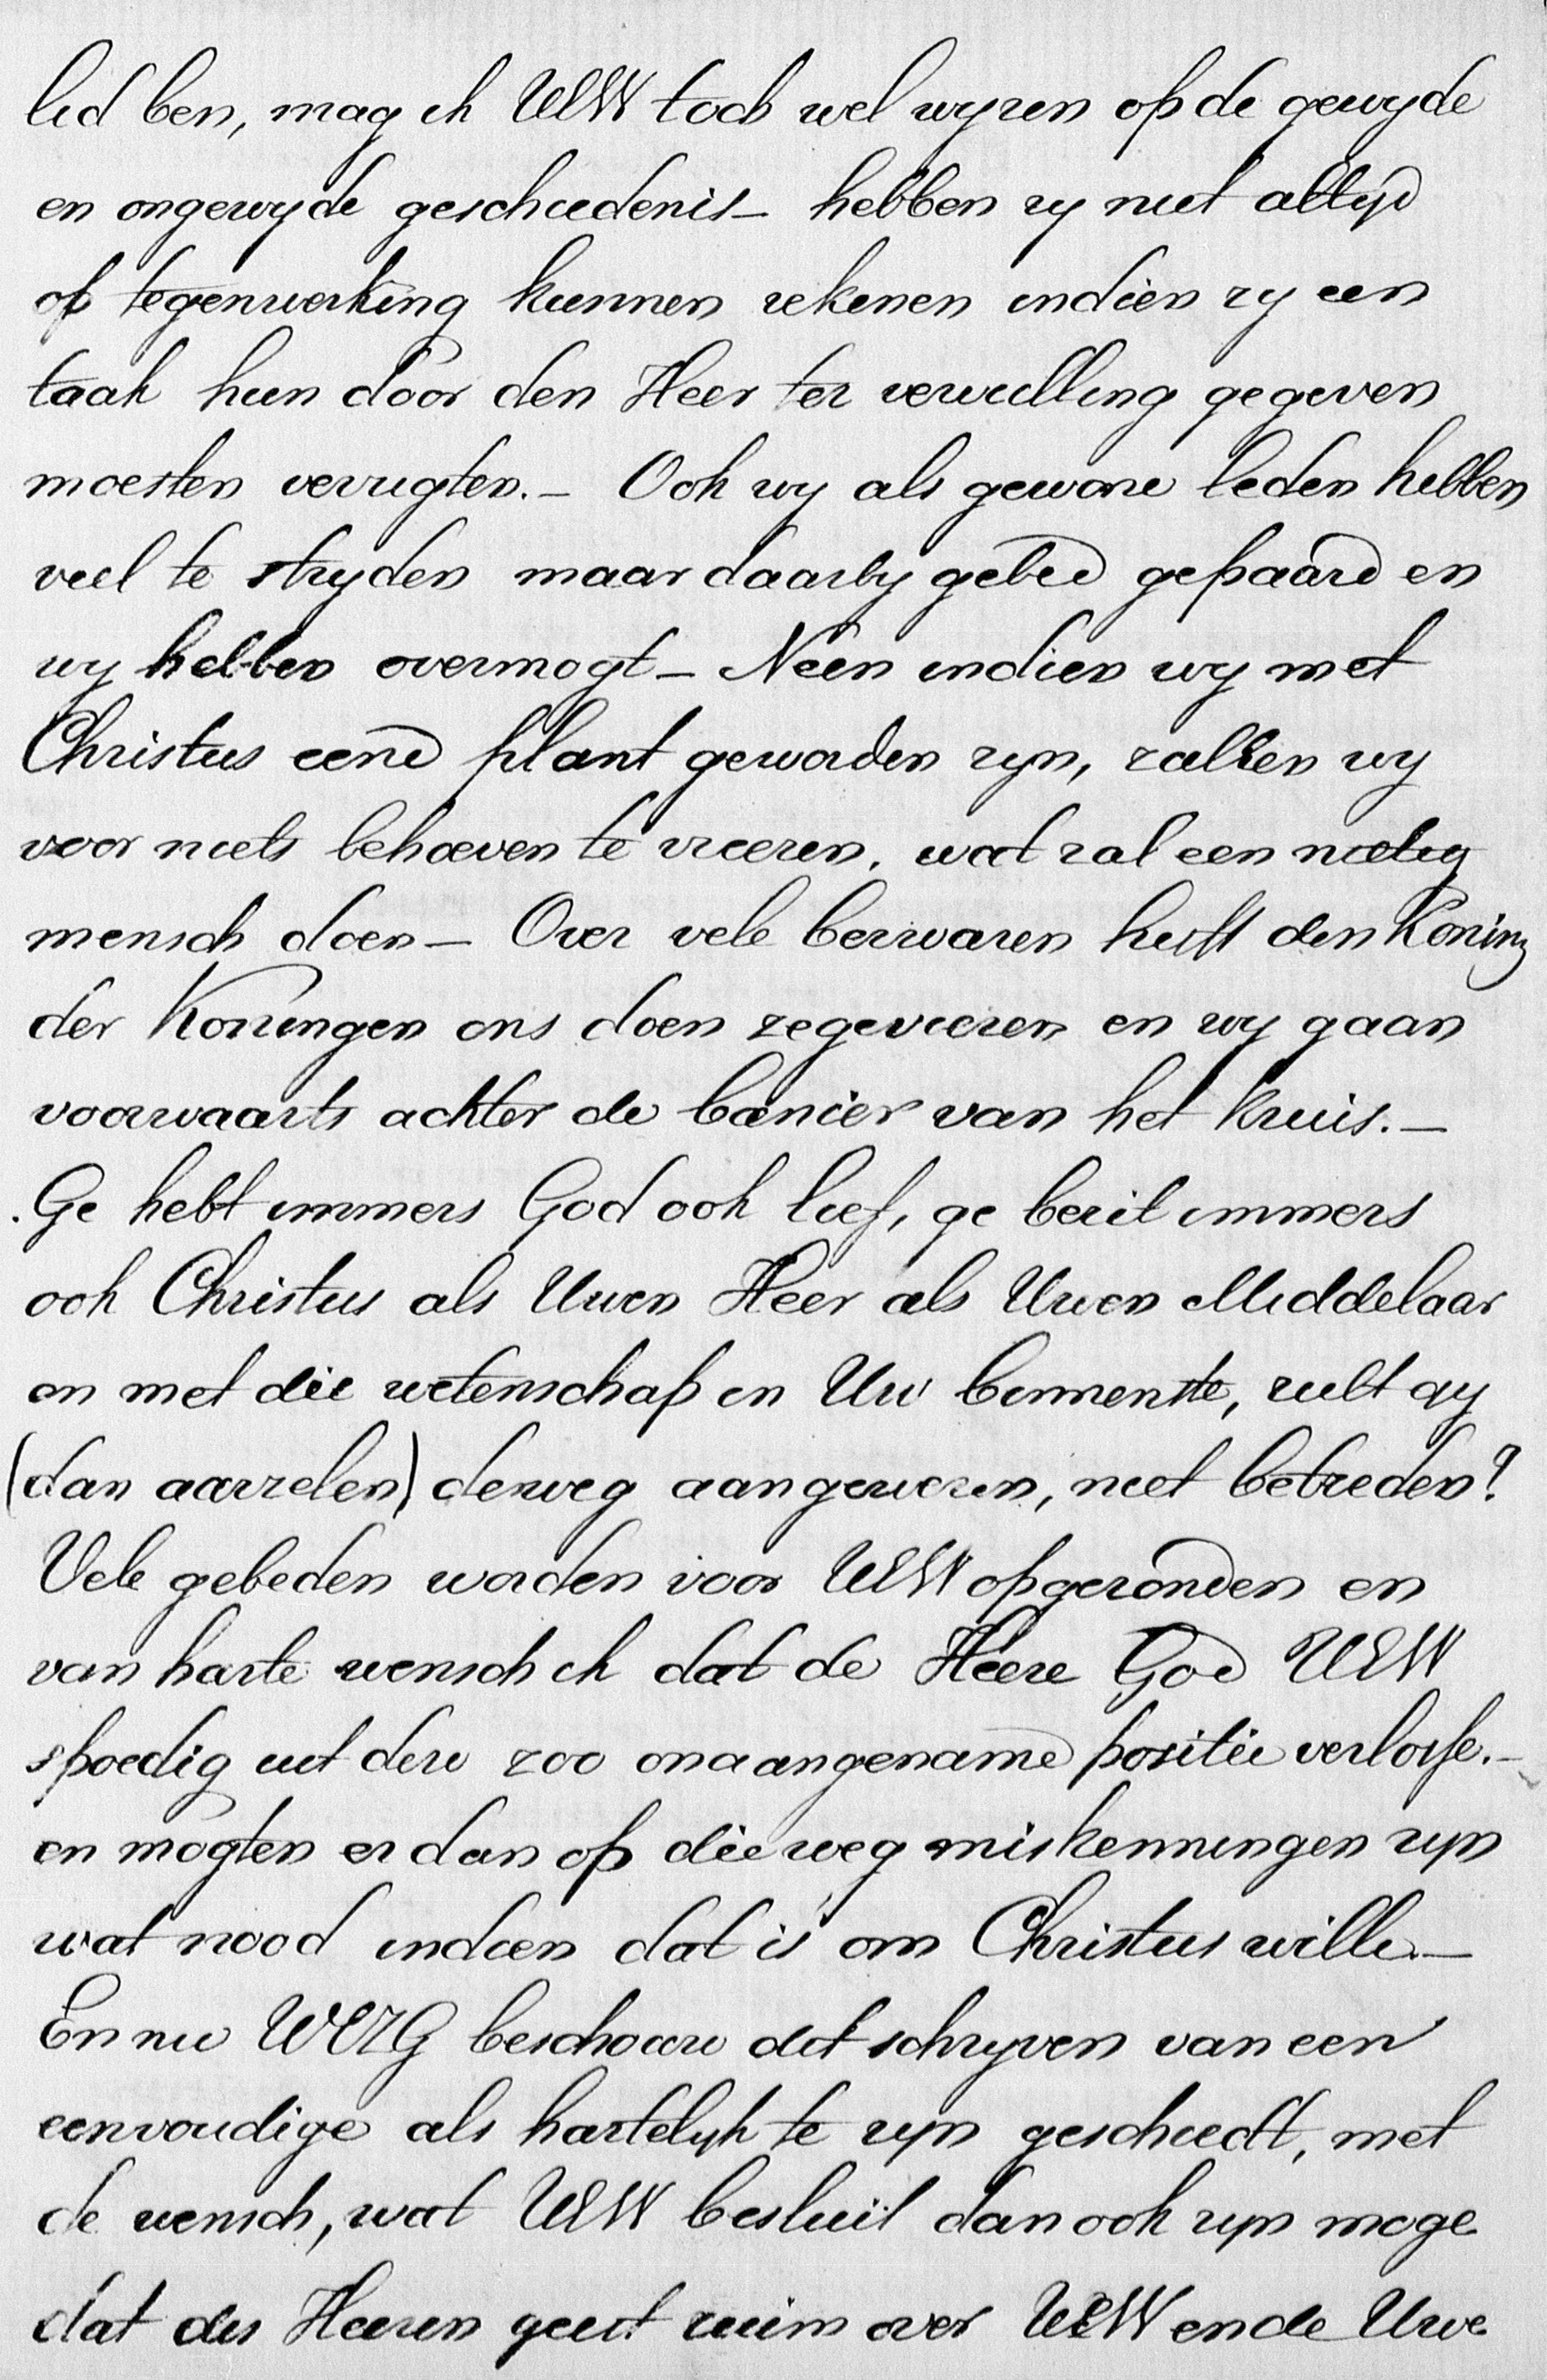 lid ben, mag ik UEW toch wel wyzen op de gewyde
en ongewyde geschiedenis – hebben zy niet altyd
op tegenwerking kunnen rekenen indien zy een
taak hun door den Heer ter vervulling gegeven
moesten verrigten. – Ook wy als gewone leden hebben
veel te stryden maar daarby gebed gepaard en
wy hebben overmogt – Neen indien wy met
Christus eene plant geworden zyn, zullen wy
voor niets behoeven te vreezen, wat zal een nietig
mensch doen – Over vele bezwaren heeft den Koning
der Koningen ons doen zegevieren en wy gaan
voorwaarts achter de banier van het kruis. –
Ge hebt immers God ook lief, ge bezit immers
ook Christus als Uwen Heer als Uwen Middelaar
en met die wetenschap in Uw binnenste, zult gy
(dan aarzelen) den weg aangewezen, niet betreden?
Vele gebeden worden voor UEW opgezonden en
van harte wensch ik dat de Heere God UEW
spoedig uit deze zoo onaangename positie verlosse. –
en mogten er dan op die weg miskenningen zyn
wat nood indien dat is om Christus wille. –
En nu WEZG beschouw dit schryven van een
eenvoudige als hartelyk te zyn geschiedt, met
de wensch, wat UEW besluit dan ook zyn moge
dat des Heeren geest ruim over UEW en de Uwe